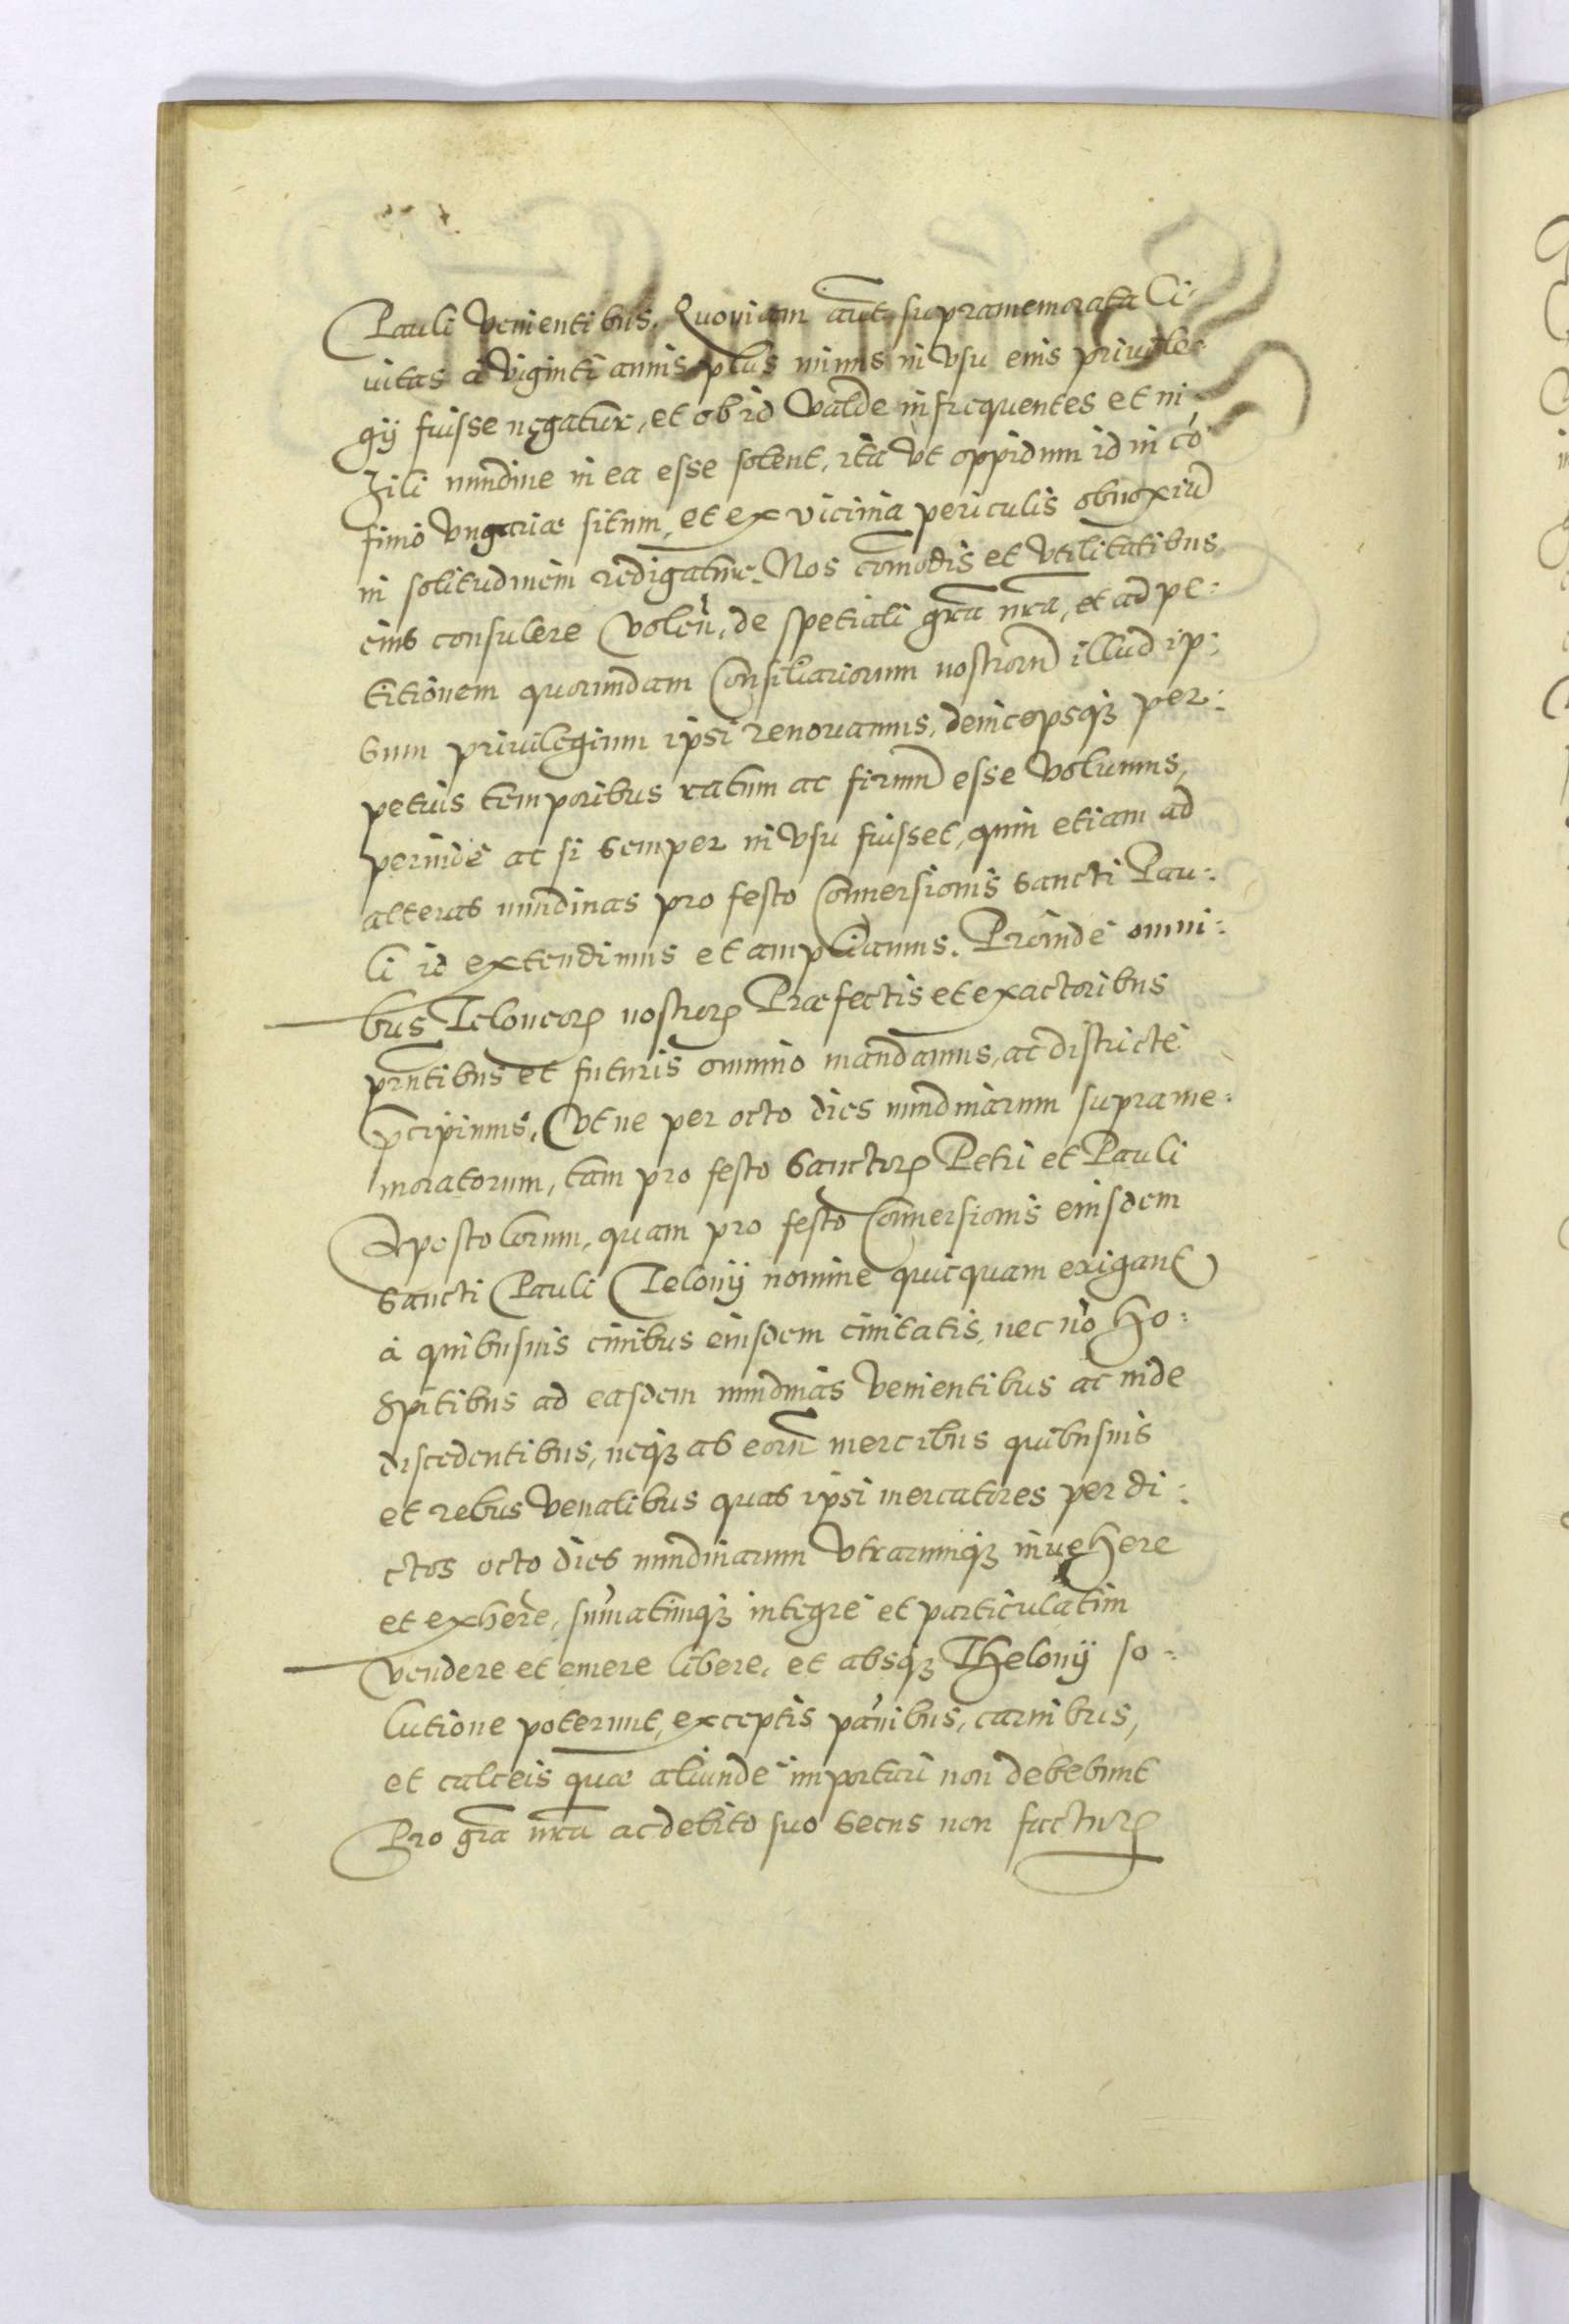 Pauli venientibus. Quoniam aut supramemorata Ci-
uitas à viginti annis plus minus in vsu eius priuile-
gij fuisse negatur, et ob id valde infrequentes et in
zili nundine in ea esse solent, ita vt oppidum id in cō
finio vngariæ situm, et ex vicinia periculis obnoxiū
in solitudinem redigatur. Nos comodis et vtilitatibus
eius consulere volen, de spetiali gra nra, et ad pe:
titionem quorundam Consiliariorum nostrorū illud ip:
sum priuilegium ipsi renouamus, deincepsqȝ per:
petuis temporibus ratum ac firmū esse volumus,
perinde ac si semper in vsu fuisset, quin etiam ad
alteras nundinas pro festo Conuersionis Sancti Pau:
li id extendimus et ampliamus. Proinde omni:
bus Teloneoꝝ nostroꝝ Præfectis et exactoribus
pntibus et futuris omnino mandamus, ac districte
pcipimus, vt ne per octo dies nundinarum suprame:
moratorum, tam pro festo Sanctoꝝ Petri et Pauli
Apostolorum, quam pro festo Conuersionis eiusdem
Sancti Pauli Telonij nomine quicquam exigant
à quibusuis ciuibus eiusdem ciuitatis, nec nō Ho:
spitibus ad easdem nundinas venientibus ac inde
discedentibus, neqȝ ab eorū mercibus quibusuis
et rebus venalibus quas ipsi mercatores per di:
ctos octo dies nundinarum vtrarumqȝ inuehere
et exhere, sūmatimqȝ integre et particulatim
vendere et emere libere, et absqȝ Thelonij so:
lutione poterunt, exceptis pānibus, carnibus,
et calceis quæ aliunde importari non debebunt
Pro gra nra ac debito suo secus non factuꝝ